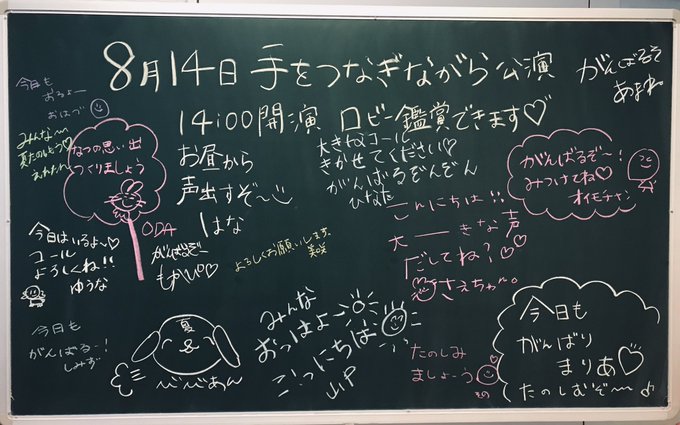 8月14日 手をつなぎながら公演
14:00開演 ロビー鑑賞できます♡
がんばるぞ
あまね
今日も
おるよー
おはづ
みんな〜
夏たのしもう♡
なつの思い出
つくりましょう
ODA
お昼から
声出すぞ〜
はな
大きなコール
きかせてください♡
がんばるぞんぞん
ひなた
がんばるぞ〜!
みつけてね♡
オイモチャン
こんにちは!!
大――きな声
だしてね?♡♡
さえちゃん。
今日はいるよ〜♡
コール
よろしくね!!
ゆうな
がんばるぞー
もかぴ♡
よろしくお願いします
美咲
今日も
がんばる〜!
しみず
夏
べべあん
みんな
おっはよー
こっにちは
JJP
たのしみ
ましょーう
その
今日も
がんばり
まりあ♡
たのしむぞ〜♪